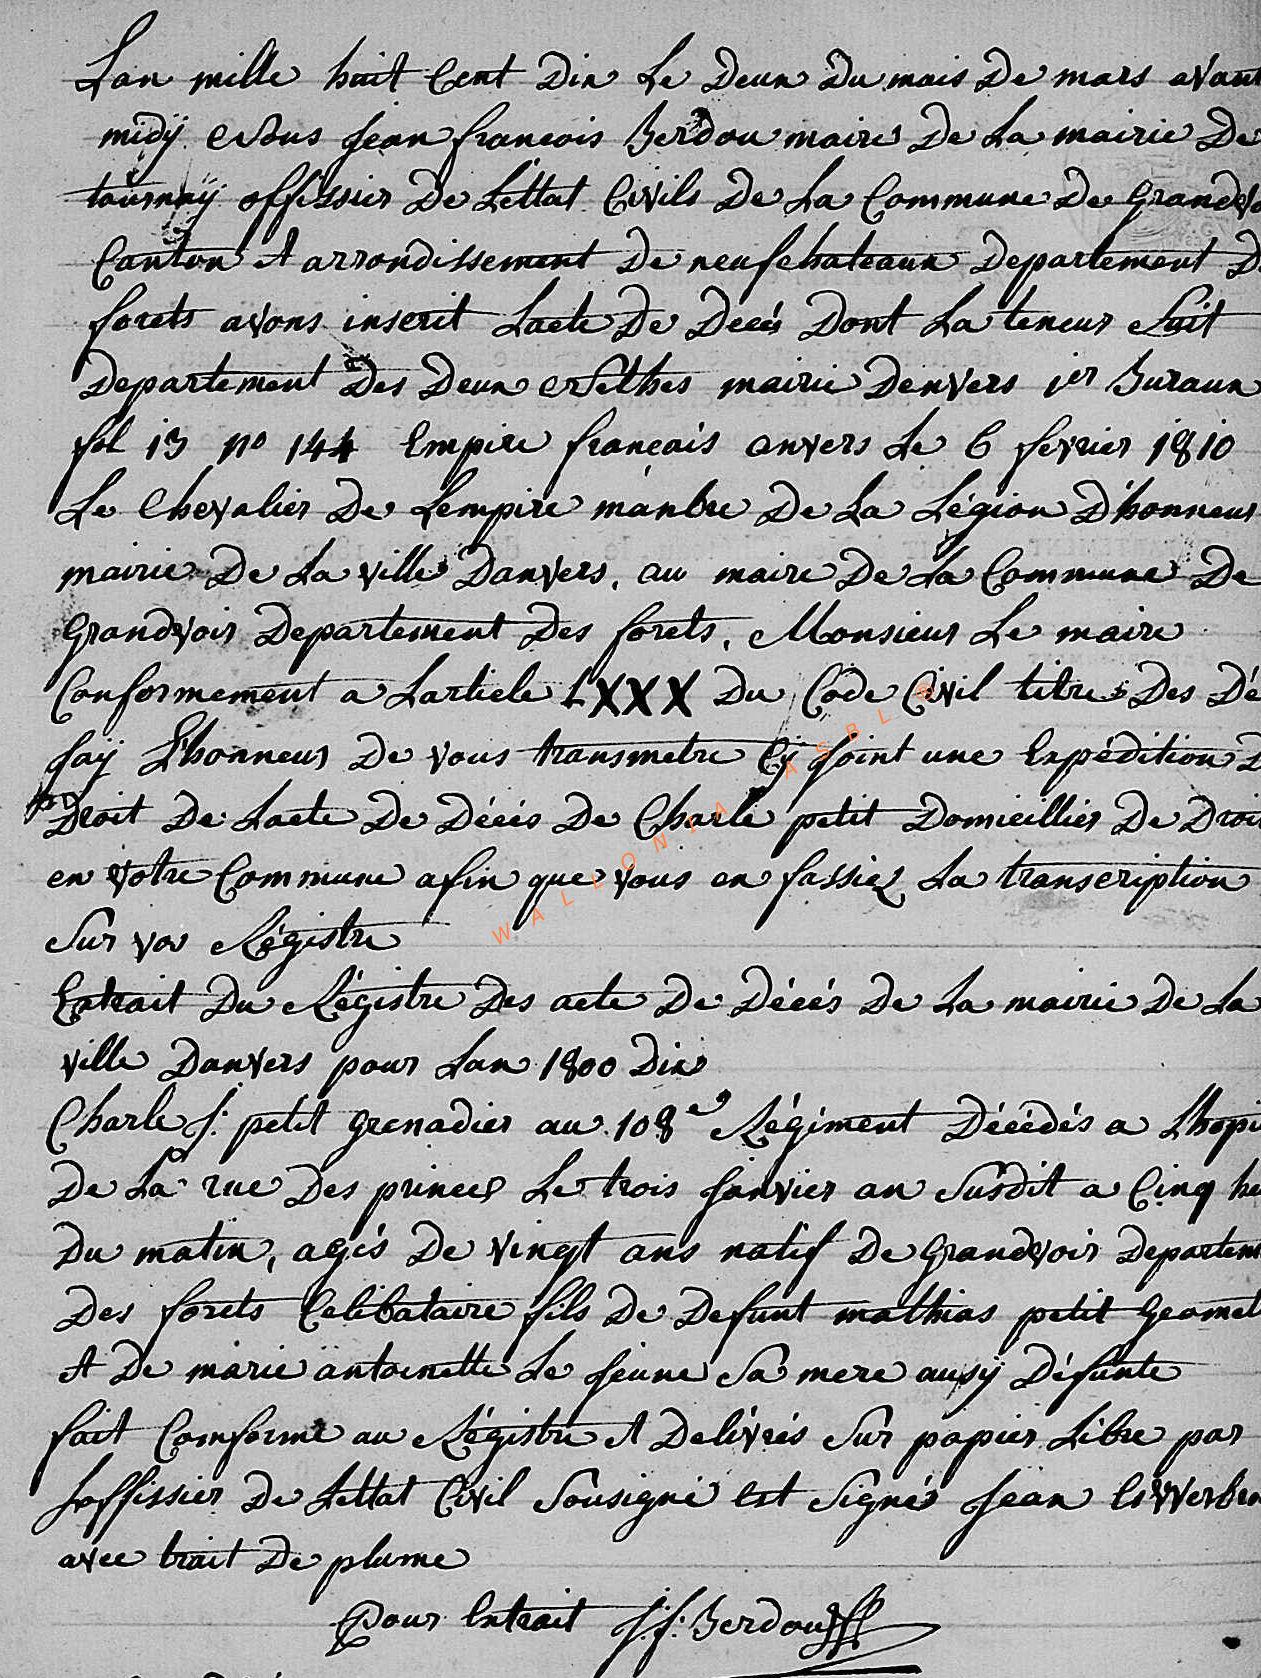 Lan mille huit Cent Dix Le Deux Du mois De mars avant
midÿ Nous Jean francois Berdou maire De La mairie De
tournaÿ offissier De Lettat Civils De La Commune De Grandvo
Canton et arrondissement De neufchateaux Departement D
forets avons inscrit Lacte De Décés Dont La teneur Suit
Departement Des Deux Nethes mairie Denvers 1er Buraux
fol 13 no 144 Empire francais anvers Le 6 fevrier 1810
Le Chevalier De Lempire manbre De La Légion D'honneur
mairie De La ville Danvers, au maire De La Commune De
Grandvoir Departement Des forets, Monsieur Le maire
Conformement a Lartiele LXXX Du Code Civil titre Des Dé
Jaÿ L'honneur De vous transmetre Cÿ Joint une Expédition D
Droit De Lacte De Décés De Charle petit Domicillier De Droit
en votre Commune afin que vous en fassiez La transcription
Sur vos Régistre
Extrait Du Régistre Des acte De Décés De La mairie De La
ville Danvers pour Lan 1800 Dix
Charle J: petit Grenadier au 108e Régiment Décédés a Lhopi
De La rue Des princes Le trois Janvier an Susdit a Cinq he
Du matin, agés De vingt ans natif De Grandvoir Departem
Des forets Celibataire fils De Defunt mathias petit Geomet
et De marie antoinette Le Jeune Sa mere ausÿ Défunte
fait Conforme au Régistre et Delivrés Sur papier Libre par
Loffissier De Lettat Civil Sousigné Est Signés Jean
avec trait De plume
Pour Extrait J: f: Berdou
WALLONIA ASBL